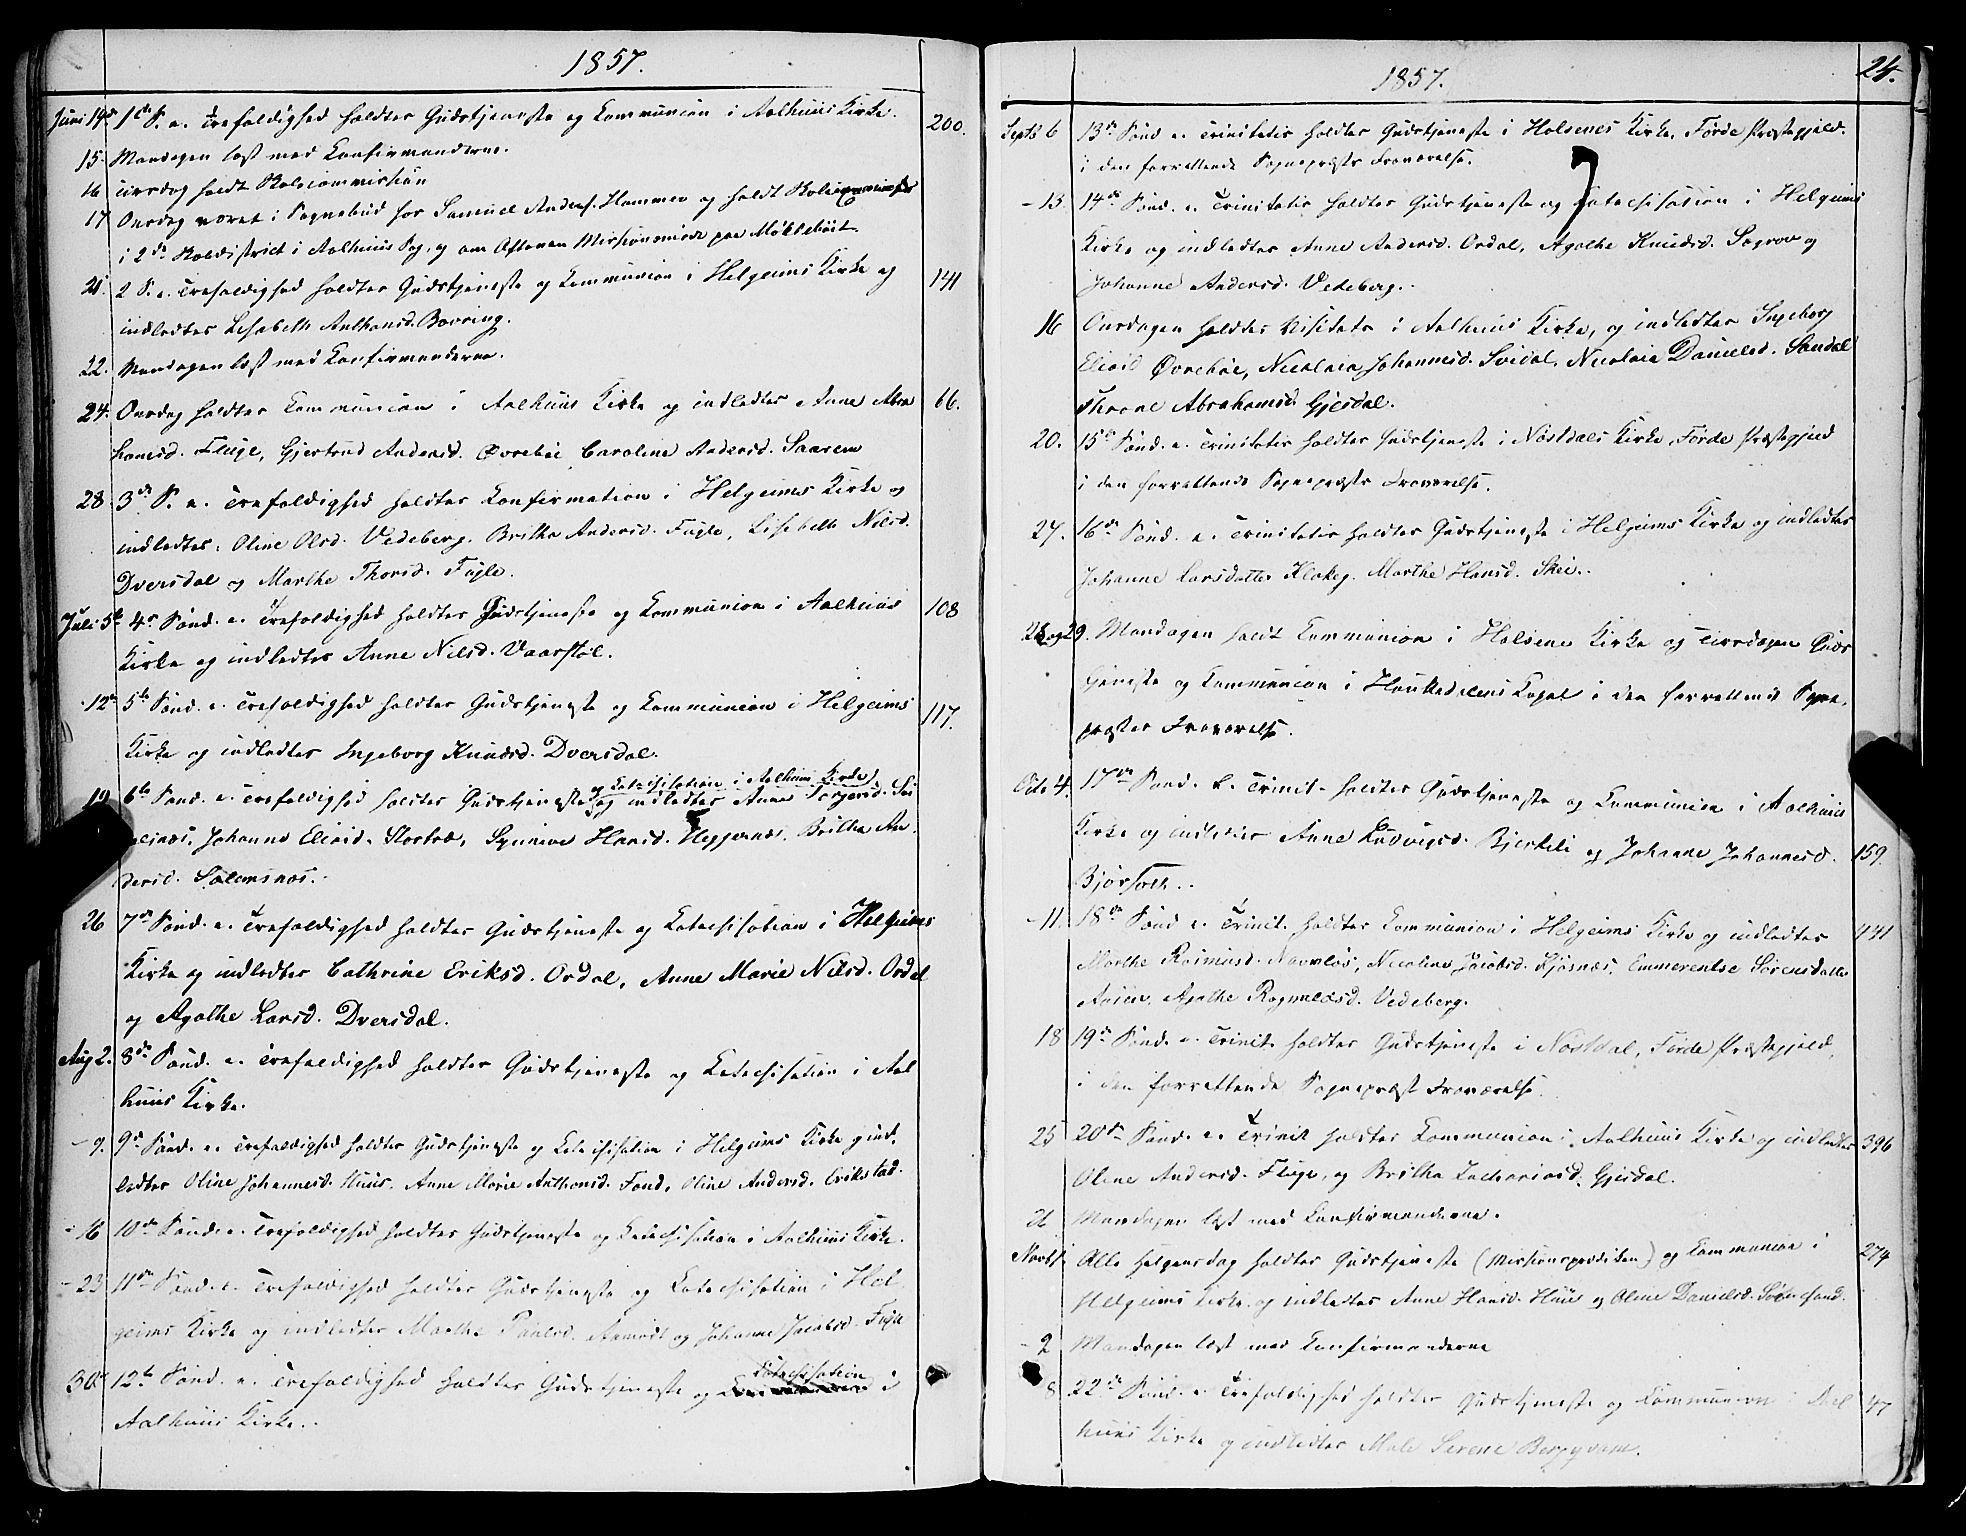 1857.
Juni 14de 1ste S. e. Trefoldighed holdtes Gudstjeneste og Communion i Aalhuus Kirke. 200.
15. Mandagen læst med Confirmanderne.
16 Tirsdag holdt Skolecommission
17 Onsdag været i Sognebud hos Samuel Anders. Hammer og holdt Skole
i 2de Skoledistrict i Aalhuus Sog, og om Aftenen Missionsmøde paa Møklebust.
21. 2 S. e. Trefoldighed holdtes Gudstjeneste og Communion i Helgeims Kirke og 141
indledtes Lisabeth Anthonsd. Bovring.
22. Mandagen læst med Confirmanderne.
24. Onsdag holdtes Communion i Aalhuus Kirke og indledtes Anne Abra 66.
hamsd. Fluge, Gjertrud Andersd. Øvrebøe Caroline Andersd. Saarem
28 3de S. e. Trefoldighed holdtes Confirmation i Helgeims Kirke og
indledtes: Oline Olsd. Vedeberg. Britha Andersd. Fugle, Lisabeth Nilsd.
Dversdal og Marthe Thorsd. Fugle.
Juli 5te 4de Sønd. e. Trefoldighed holdtes Gudstjeneste og Communion i Aalhuus 108
Kirke og indledtes Anne Nilsd. Vaarstøl.
12te 5te Sønd. e. Trefoldighed holdtes Gudstjeneste og Communion i Helgeims 117.
Kirke og indledtes Ingeborg Knudsd. Dversdal.
og Catechisation i Aalhuus Kirke
19 6te Sønd. e. Trefoldighed holdtes Gudstjeneste og indledtes Anne
Johanne Eliasd. Synneve Hansd. Heggenæs. Britha An-
dersd. Solemsnæs.
26 7de Sønd. e. Trefoldighed holdtes Gudstjeneste og Catechisation i Helgeims
Kirke og indledtes Cathrine Eriksd. Ordal, Anne Marie Nilsd. Ordal
og Agathe Larsd. Dversdal.
Aug 2. 8de Sønd. e. Trefoldighed holdtes Gudstjeneste og Catechisation i Aal
huus Kirke.
- 9. 9de Sønd. e. Trefoldighed holdtes Gudstjeneste og Catechisation i Helgeims Kirke og ind.
ledtes Oline Johannesd. Huus. Anne Marie Anthonsd. Fond, Oline Andersd. Erikstad.
- 16 10de Sønd. e. Trefoldighed holdtes Gudstjeneste og Catechisation i Aalhuus Kirke.
- 23 11de Sønd. e. Trefoldighed holdtes Gudstjeneste og Catechisation i Hel
geims Kirke og indledtes Marthe Paulsd. Aamodt og Johanne Jacobsd. Fugle
Catechisation
30te 12te Sønd. e. Trefoldighed holdtes Gudstjeneste og i
Aalhuus Kirke.
1857. 24.
Septb 6 13de Sønd e. Trinitatis holdtes Gudstjeneste i Holsenes Kirke, Førde Præstegjeld.
i den forrettende Sognepræsts Fraværelse.
- 13. 14de Sønd. e. Trinitatis holdtes Gudstjeneste og Catechisation i Helgeims
Kirke og indledtes Anne Andersd. Ordal, Agathe Knudsd. Søgrov og
Johanne Andersd. Vedeberg.
16 Onsdagen holdtes Visitats i Aalhuus Kirke, og indledtes Ingeborg
Eliasd Øvrebøe, Nicolaia Johannesd. Svidal, Nicolaia Danielsd. Sandal
Throne Abrahamsd. Gjesdal.
20. 15de Sønd. e. Trinitatis holdtes Gudstjeneste i Nøstdals Kirke, Førde Præstegjeld
i den forrettende Sognepræsts Fraværelse.
27. 16de Sønd. e. Trinitatis holdtes Gudstjeneste i Helgeims Kirke og indledtes
Johanne Larsdatter Klakeg. Marthe Hansd. Skei.
28 og 29. Mandagen holdt Communion i Holsene Kirke og Tirsdagen Guds
tjeneste og Communion i Houkedalens Capel i den forrettende Sogne-
præstes Fraværelse.
Octb 4. 17de Sønd. e. Trinit. holdtes Gudstjeneste og Communion i Aalhuus
Kirke og indledtes Anne Ludvigsd. Bjerkeli og Johanne Johannesd. 159.
Bjørset.
- 11. 18de Sønd e. Trinit. holdtes Communion i Helgeims Kirke og indledtes 141
Marthe Rasmusd. Navnløs, Nicoline Jacobsd. Kjøsnæs, Emmerentse Sørensdatter
Agathe Ragnaldsd. Vedeberg.
18 19de Sønd. e. Trinit. holdtes Gudstjeneste i Nøstdal, Førde Præstegjeld,
i den forrettende Sognepræsts Fraværelse.
25 20de Sønd. e. Trinit holdtes Communion i Aalhuus Kirke og indledtes 396
Oline Andersd. Fluge, og Britha Zachariasd. Gjesdal.
26 Mandagen læst med Confirmanderne.
Novb 1. Alle Helgensdag holdtes Gudstjeneste (Missionsprædiken) og Communion i 274
Helgeims Kirke og indledtes Anne Hansd. Huus og Oline Danielsd.
- 2 Mandagen læst med Confirmanderne
8 22de Sønd. e. Trefoldighed holdtes Gudstjeneste og Communion i Aal 47
huus Kirke og indledtes Male Serene Bergyvam.